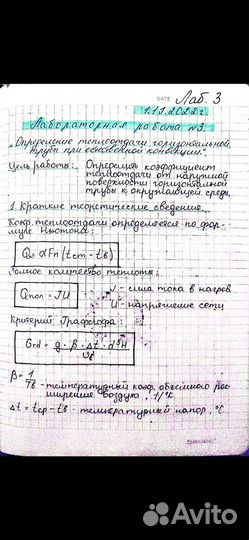 DATE Лаб. 3
1.11.2022г
Лабораторная работа №3.
„Определение теплоотдачи горизонтальной
трубы при свободной конвекции."
Цель работы: Определить коэффициент
теплоотдачи от наружной
поверхности горизонтальной
трубы к окружающей среде
1. Краткие теоретические сведения
Коэф. теплоотдачи определяется по фор-
муле Ньютона:
Q = αFn (tст - tв)
Полное количество теплоты:
Qпол = JU J - сила тока в нагрев
U - напряжение сети
Критерий Грасгофа:
Grd = g · β · Δt · d³н
β = 1
Tв - температурный коэф. объёмного рас-
ширения воздуха, 1/°C
Δt = tср - tв - температурный напор, °C
Avito